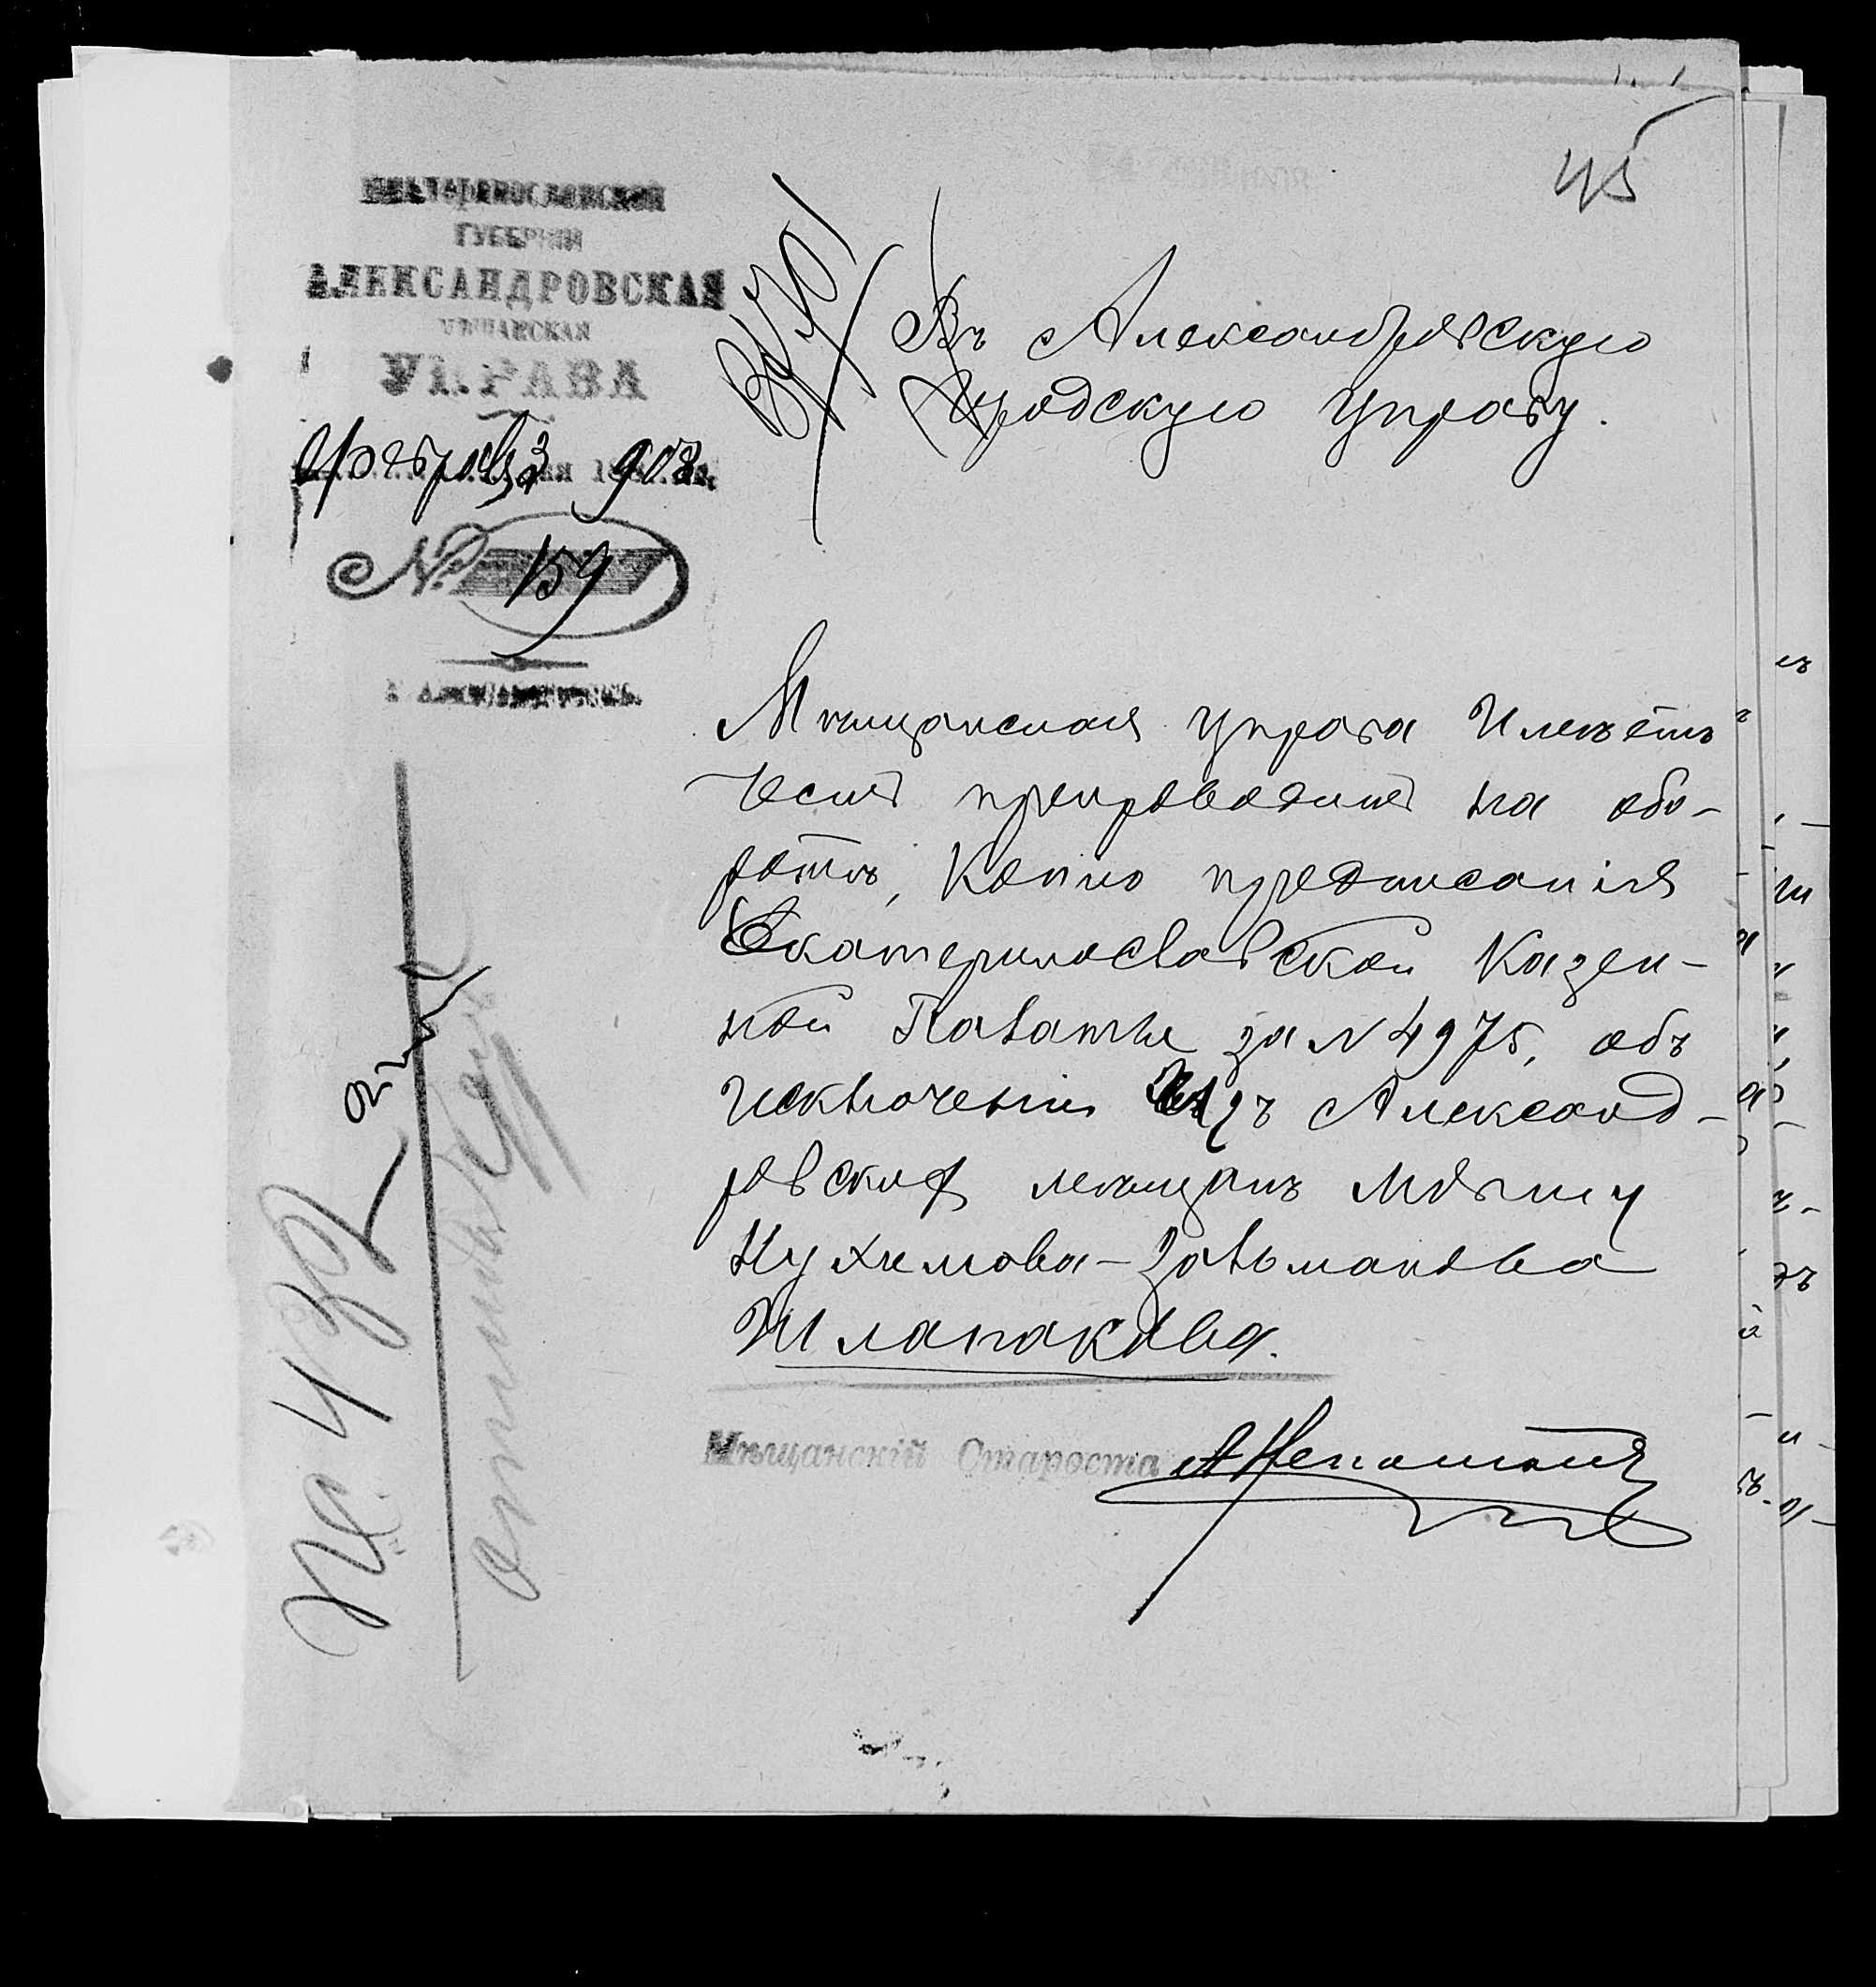 45
ЕКАТЕРИНОСЛАВСКОЙ
ГУБЕРНІИ
АЛЕКСАНДРОВСКАЯ
МѢЩАНСКАЯ
УПРАВА
Февраля 3 908 г.
№ 159
г. Александровскъ.
Въ Александровскую
Городскую Управу.
Мѣщанская управа Имѣетъ
честь препроводить на обо-
ротѣ, Копію предписанія
Екатеринославской Казен-
ной Палаты за № 4975, объ
исключеніи изъ Александ-
ровскихъ мѣщанъ Мовшу
Нухимова-Зальманова
Шлапакова.
Мѣщанскій Староста